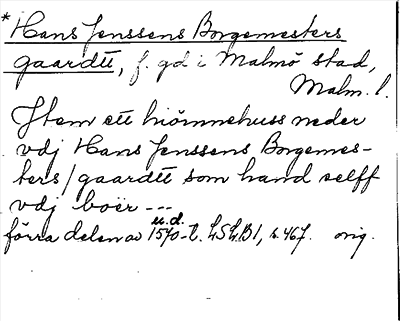 * Hans Jenssens Borgemesters
gaardtt, f. gd i Malmö stad,
Malm. l.
Item ett hiörnnehuss neder
vdj Hans Jenssens Borgemes-
ters / gaardtt som hand selff
vdj boer ---
u.d.
förra delen av 1570-t. LSLB1, s. 467. orig.